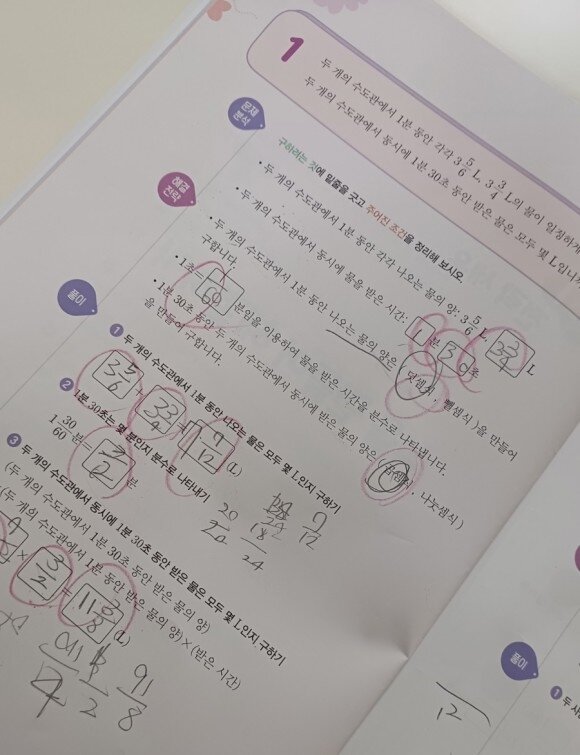 1
두 개의 수도관에서 1분 동안 각각 3 5/6 L, 3 3/4 L의 물이 일정하게
두 개의 수도관에서 동시에 1분 30초 동안 받은 물은 모두 몇 L입니까
문제 분석
구하려는 것에 밑줄을 긋고 주어진 조건을 정리해 보시오.
• 두 개의 수도관에서 1분 동안 각각 나오는 물의 양: 3 5/6 L, 3 3/4 L
• 두 개의 수도관에서 동시에 물을 받은 시간: 1분 30초
해결 전략
• 두 개의 수도관에서 1분 동안 나오는 물의 양은 (덧셈식, 뺄셈식)을 만들어
구합니다.
• 1초= 1/60 분임을 이용하여 물을 받은 시간을 분수로 나타냅니다.
• 1분 30초 동안 두 개의 수도관에서 동시에 받은 물의 양은 (곱셈식, 나눗셈식)
을 만들어 구합니다.
풀이
❶ 두 개의 수도관에서 1분 동안 나오는 물은 모두 몇 L인지 구하기
3 5/6 + 3 3/4 = 7/12 (L)
❷ 1분 30초는 몇 분인지 분수로 나타내기
1 30/60 분= 분
20/24
18/24
9/12
❸ 두 개의 수도관에서 동시에 1분 30초 동안 받은 물은 모두 몇 L인지 구하기
(두 개의 수도관에서 1분 30초 동안 받은 물의 양)
(두 개의 수도관에서 1분 동안 받은 물의 양)×(받은 시간)
× 3/2 = 11 3/8 (L)
91/8
풀이
❶ 두 사
12